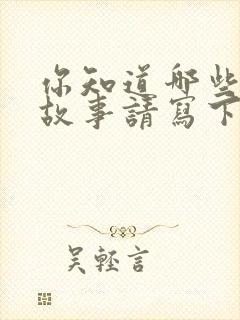 你知道哪些
故事請寫下
吳輕言